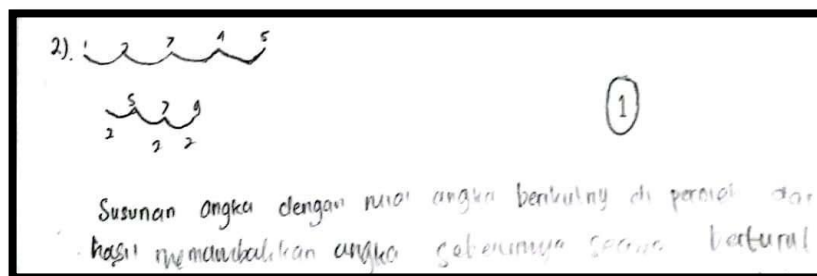 2). 1 2 3 4 5
5 7 9
2 2 2
1
Susunan angka dengan nilai angka berikutny di peroleh dar
hasil menambahkan angka sebelumnya secara berturut